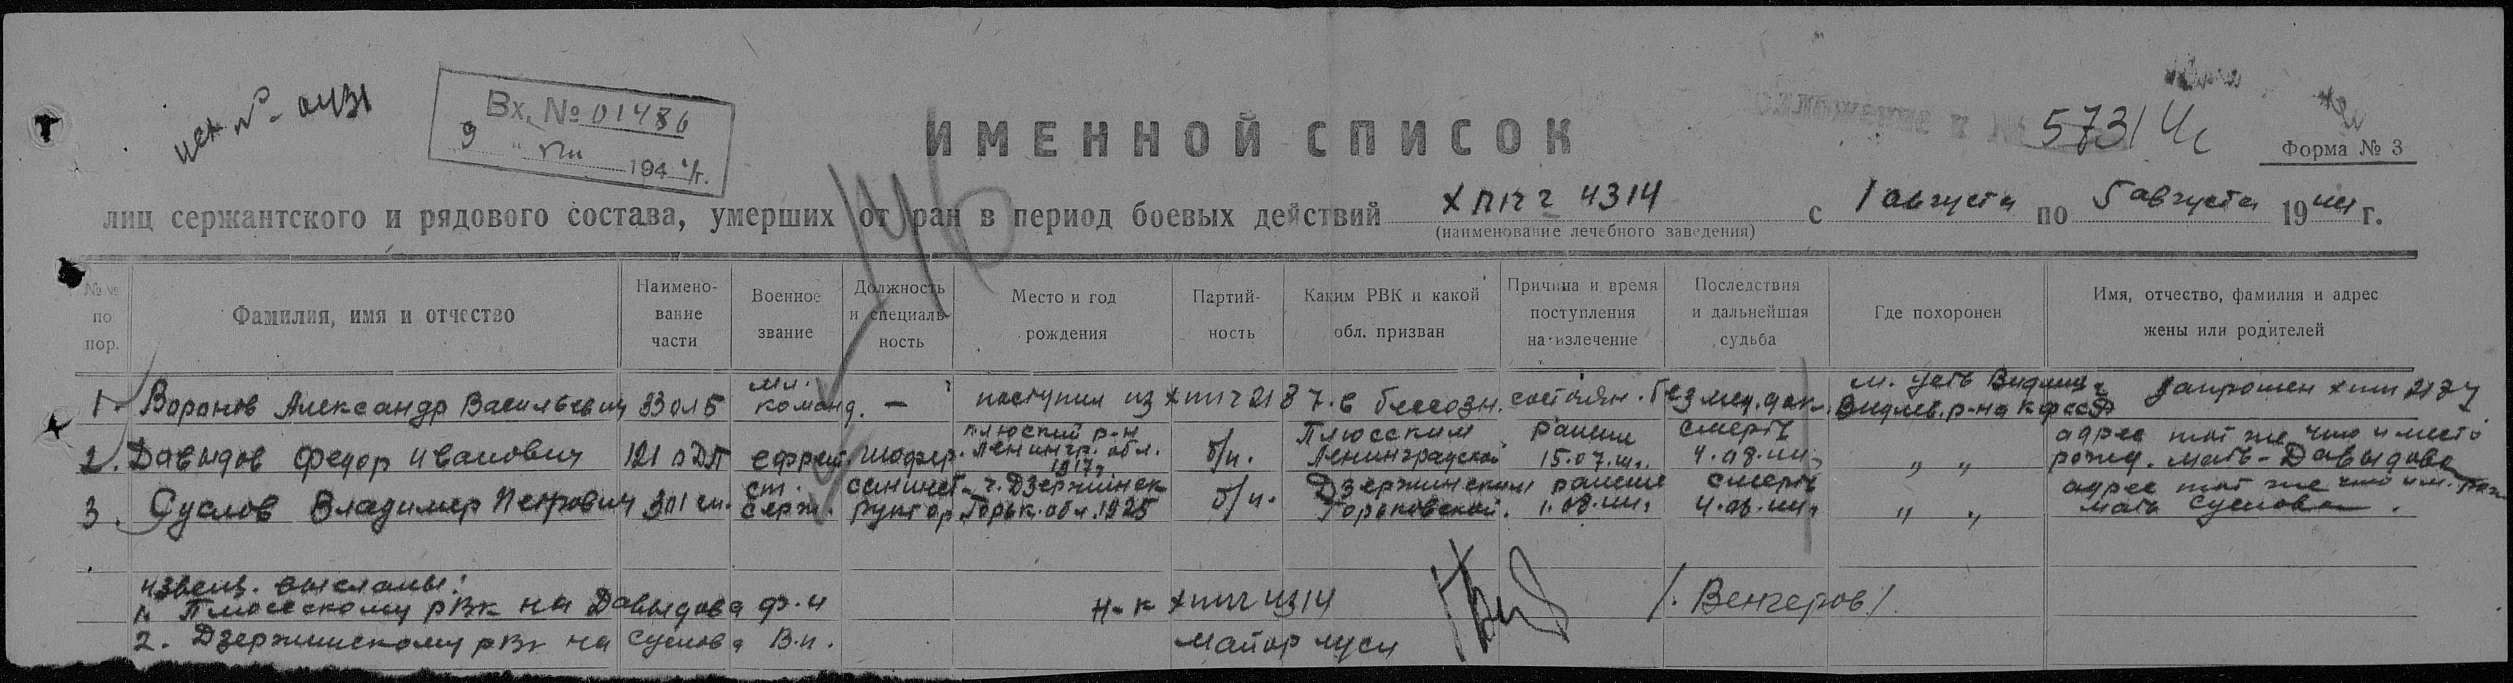 исх № 0431
Вх. № 01486
9 " VIII 1944 г.
ИМЕННОЙ СПИСОК
5731 Ч с
Форма № 3
146
лиц сержантского и рядового состава, умерших от ран в период боевых действий ХППГ 4314 с 1 августа по 5 августа 1944 г.
(наименование лечебного заведения)
№№ по пор.
Фамилия, имя и отчество
Наименование части
Военное звание
Должность и специальность
Место и год рождения
Партийность
Каким РВК и какой обл. призван
Причина и время поступления на излечение
Последствия и дальнейшая судьба
Где похоронен
Имя, отчество, фамилия и адрес жены или родителей
1. Воронов Александр Васильевич 33 олб мл. команд. — поступил из хппг 2187. в бессозн. состоян. без мед. док. м. усть Видлица Видлев. р-на КФССР Запрошен хппг
2. Давыдов Федор Иванович 121 ПДП ефрейт шофер. Плюсский р-н Ленингр. обл. 1917г. б/п. Плюсским Ленинградской ранен 15.07.44г. смерть 4.08.44г. " " адрес тот же что и место рожд. мать - Давыдова
3. Суслов Владимир Петрович 301 сп. ст. серж. санинструктор г. Дзержинск Горьк. обл. 1925 б/п. Дзержинским Горьковской. ранен 1.08.44г. смерть 4.08.44г. " " адрес тот же что и м. рож. мать Суслова.
извещ. высланы:
1. Плюсскому рвк на Давыдова ф. и
2. Дзержинскому рвк на Суслова В.п.
Н-к хппг 4314
майор м/сл
/. Венгеров/.